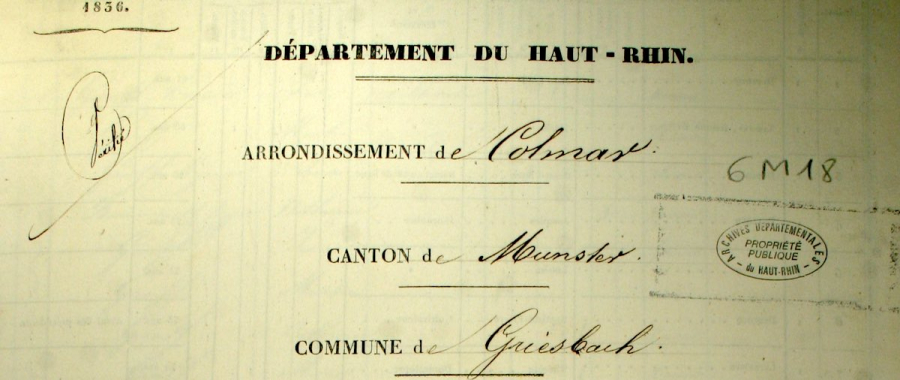 1836.
DÉPARTEMENT DU HAUT-RHIN.
Vérifié
ARRONDISSEMENT de Colmar.
6 M 18
CANTON de Munster.
ARCHIVES DÉPARTEMENTALES
PROPRIÉTÉ
PUBLIQUE
- du HAUT-RHIN -
COMMUNE de Griesbach.